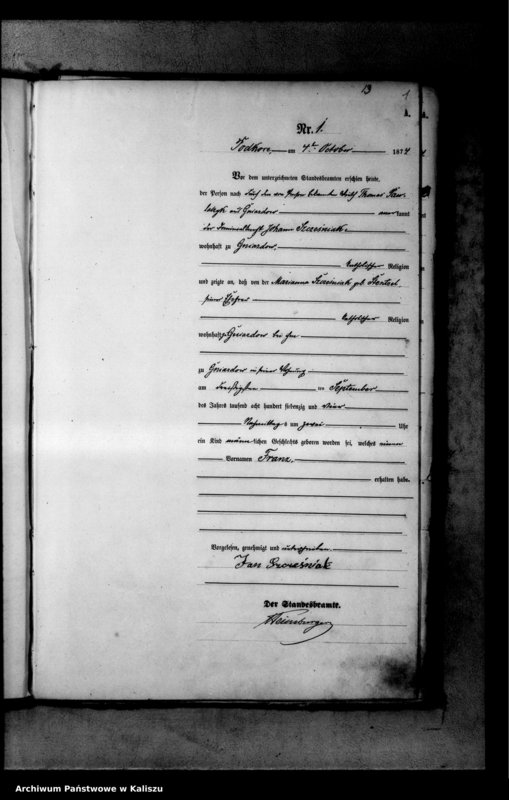 13 1
A.
Nr. 1.
Podkoce, am 4ten October 1874
Vor dem unterzeichneten Standesbeamten erschien heute,
der Person nach durch den von Person bekannten Thomas
und Gniazdow kannt
der Johann Szcześniak
wohnhaft zu Gniazdow
katholischer Religion
und zeigte an, daß von der Marianna Szcześniak geb.
seiner Ehefrau
katholischer Religion
wohnhaft zu Gniazdow bei ihm
zu Gniazdow in seiner Wohnung
am dreißigsten ten September
des Jahres tausend acht hundert siebenzig und vier
Nachmittags um zwei Uhr
ein Kind männlichen Geschlechts geboren worden sei, welches einen
Vornamen Franz,
erhalten habe.
Vorgelesen, genehmigt und unterschrieben
Jan Szcześniak
Der Standesbeamte.
Archiwum Państwowe w Kaliszu